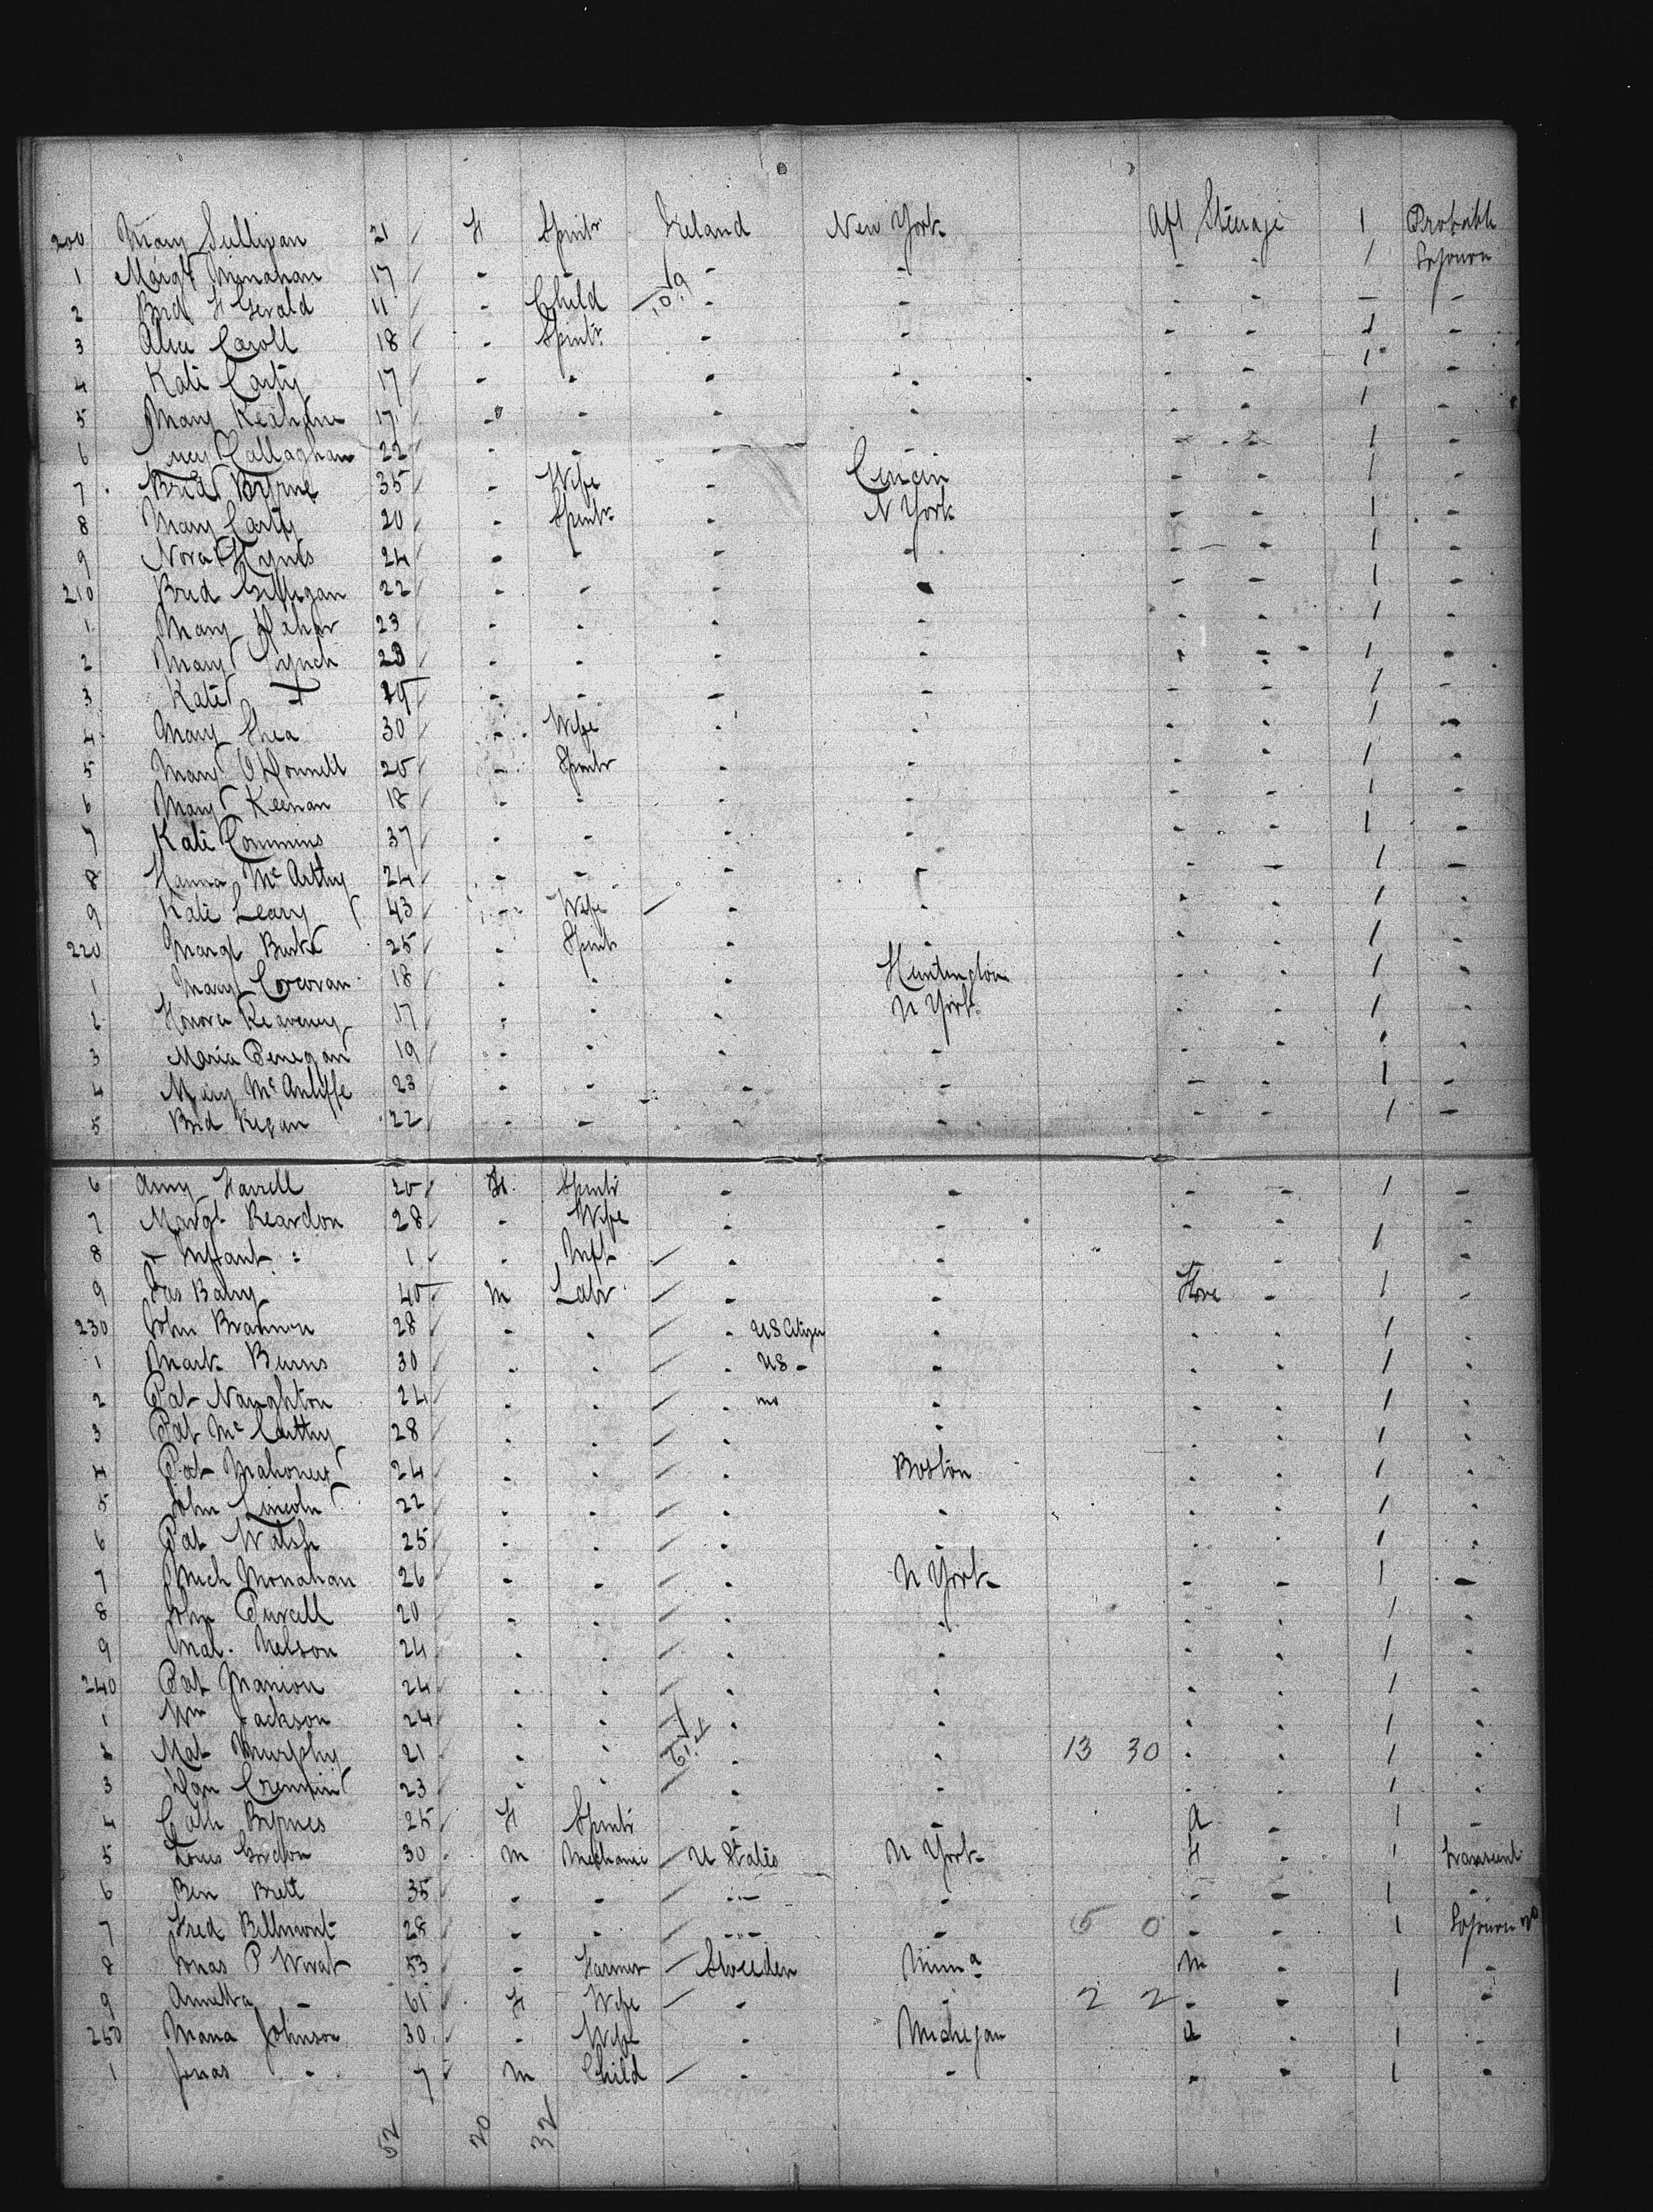 200 Mary Sullivan 21 F Spintr Ireland New York Aft Steerage 1 Probable
1 Margt Minahan 17 - - - - - - 1 Sojourn
2 Brid Fitzgerald 11 - Child - - - - - -
3 Alice Caroll 18 - Spintr - - - - 1 -
4 Kate Carty 17 - - - - - - 1 -
5 Mary 17 - - - - - - 1 -
6 Callaghan 22 - - - - - - 1 -
7 Brid Byrne 35 - Wife - Cincin - - 1 -
8 Mary Carty 20 - Spintr - N York - - 1 -
9 Nora Hynes 24 - - - - - - 1 -
210 Brid Gilligan 22 - - - - - - 1 -
1 Mary 23 - - - - - - 1 -
2 Mary Lynch 23 - - - - - - 1 -
3 Kate - - - - - - - 1 -
4 Mary Shea 30 - Wife - - - - 1 -
5 Mary O'Donnell 25 - Spintr - - - - 1 -
6 Mary Keenan 18 - - - - - - 1 -
7 Kate Commins 37 - - - - - - 1 -
8 Hanna McArthy 24 - - - - - - 1 -
9 Kate Leary 43 - Wife - - - - 1 -
220 Margt Burke 25 - Spintr - - - - 1 -
1 Mary Corcoran 18 - - - Huntington - - 1 -
2 Honora Reaveney 17 - - - N York - - 1 -
3 Maria Penegan 19 - - - - - - 1 -
4 Mary McAuliffe 23 - - - - - - 1 -
5 Brd Regan 22 - - - - - - 1 -
6 Amy Farrell 20 F Spintr - - - - 1 -
7 Margt Reardon 28 - Wife - - - - 1 -
8 - Infant 1 - Inft - - - - 1 -
9 Jas 40 M Labr - - Fore - 1 -
230 John Brannon 28 - - - US Citizen - - - 1 -
1 Mark Burns 30 - - - US - - - - 1 -
2 Pat Naughton 24 - - - no - - - 1 -
3 Pat McCarthy 28 - - - - - - 1 -
4 Pat Mahoney 24 - - - Boston - - 1 -
5 John Lincoln 22 - - - - - - 1 -
6 Pat Walsh 25 - - - - - - 1 -
7 Mich Monahan 26 - - - N York - - 1 -
8 Purcell 20 - - - - - - 1 -
9 Nelson 24 - - - - - - 1 -
240 Pat Manion 24 - - - - - - 1 -
1 Wm Jackson 24 - - - - - - 1 -
2 Mat Murphy 21 - - - - 13 30 - - 1 -
3 Dan Cremin 23 - - - - - - 1 -
4 Cath Byrnes 25 F Spintr - - A - 1 -
5 Louis Gordon 30 M Mechanic U States N York F - 1 Transient
6 Ben Brett 35 - - - - - - 1 -
7 Fred Bellmont 28 - - - - 5 0 - - 1 Sojourn
8 Jonas P 53 - Farmer Sweden Minna M - -
9 Annetta - 61 F Wife - - 2 2 - - 1 -
250 Maria Johnson 30 - Wife - Michegan A - 1 -
1 Jonas - 7 M Child - - - - 1 -
52 20 32